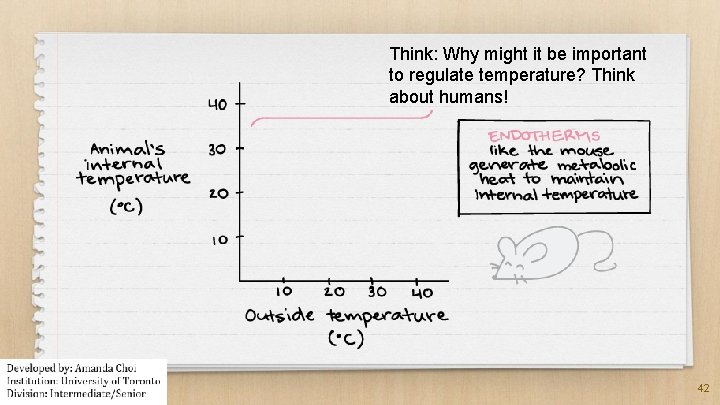 Think: Why might it be important
to regulate temperature? Think
about humans!
40
30
20
10
Animal's
internal
temperature
(°C)
ENDOTHERMS
like the mouse
generate metabolic
heat to maintain
internal temperature
10 20 30 40
Outside temperature
(°C)
Developed by: Amanda Choi
Institution: University of Toronto
Division: Intermediate/Senior
42